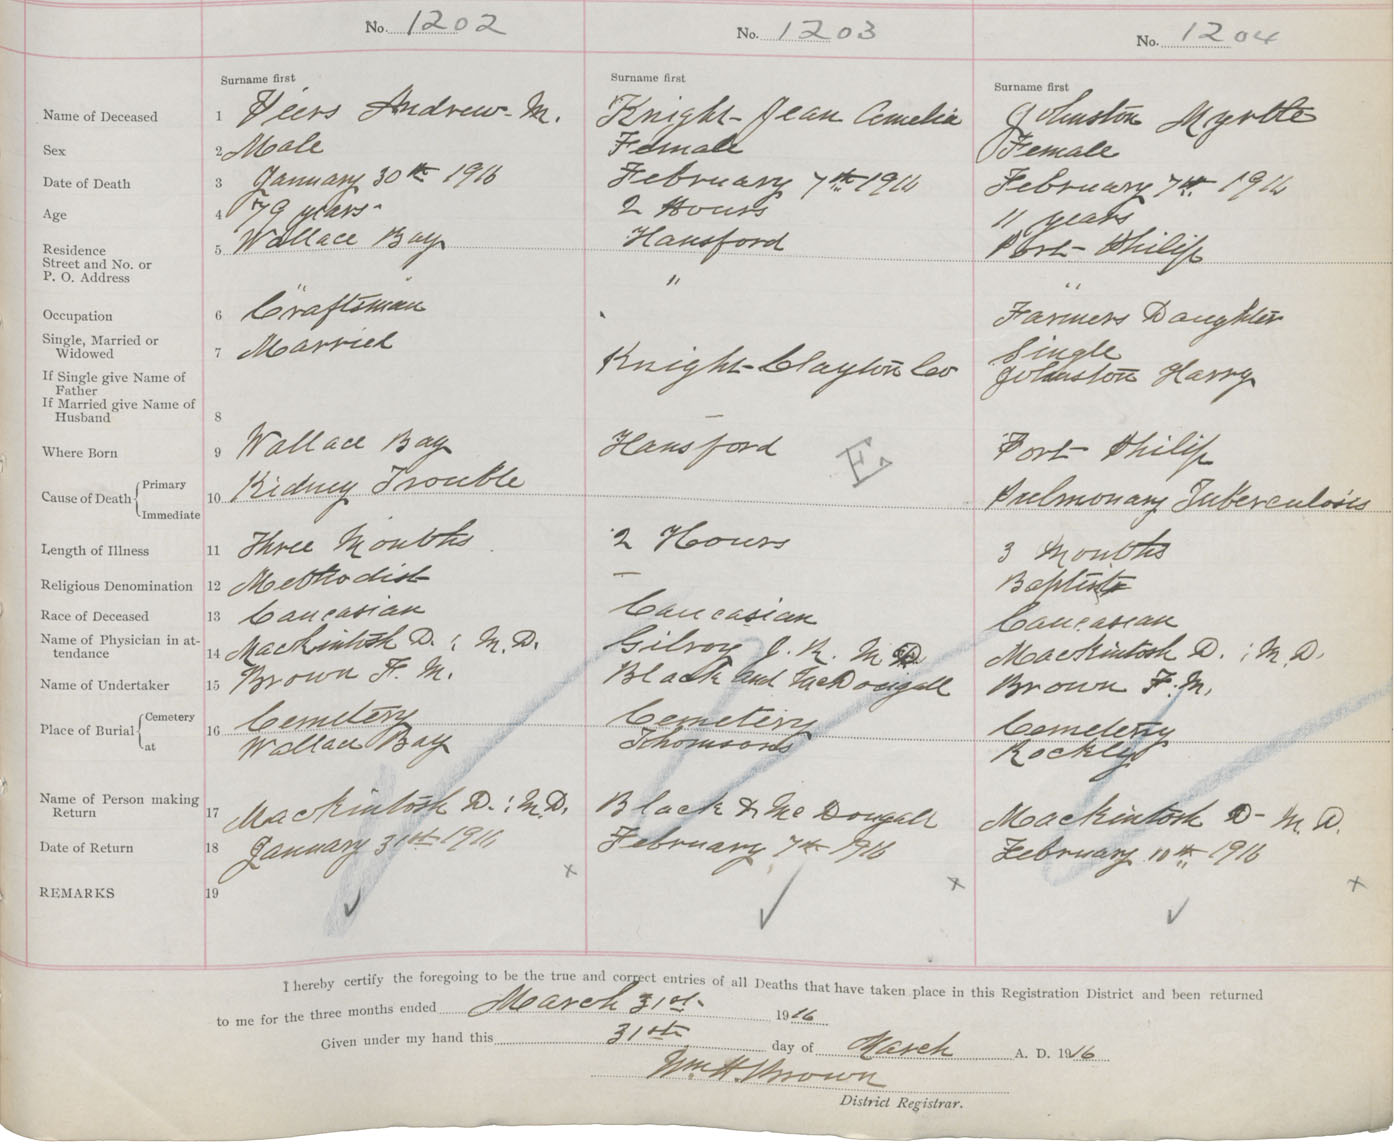 No. 1202 No. 1203 No. 1204
Surname first Surname first Surname first
Name of Deceased 1 Veers Andrew M. Knight Jean Amelia Johnston Myrtle
Sex 2 Male Female Female
Date of Death 3 January 30th 1916 February 7th 1916 February 7th 1916
Age 4 79 years 2 Hours 11 years
Residence 5 Wallace Bay Hansford Port Philip
Street and No. or
P. O. Address " " " " "
Occupation 6 Craftsman Farmers Daughter
Single, Married or
Widowed 7 Married Single
If Single give Name of
Father Knight Clayton Co Johnston Harry
If Married give Name of
Husband 8 —
Where Born 9 Wallace Bay Hansford E. Port Philip
Cause of Death { Primary
10 Kidney Trouble Pulmonary Tuberculosis
Immediate
Length of Illness 11 Three Months 2 Hours 3 Months
Religious Denomination 12 Methodist — Baptist
Race of Deceased 13 Caucasian Caucasian Caucasian
Name of Physician in at-
tendance 14 MacKintosh D. ; M.D. Gilroy J. R. M D MacKintosh D. ; M.D.
Name of Undertaker 15 Brown F. M. Black and MacDougall Brown F. M.
Place of Burial { Cemetery
16 Cemetery Cemetery Cemetery
at Wallace Bay Thomsons Rockley
Name of Person making
Return 17 MacKintosh D. ; M.D. Black & Mc Dougall MacKintosh D - M.D.
Date of Return 18 January 31st 1916 February 7th 1916 February 10th 1916
x x x
REMARKS 19
I hereby certify the foregoing to be the true and correct entries of all Deaths that have taken place in this Registration District and been returned
to me for the three months ended March 31st 1916
Given under my hand this 31st day of March A. D. 1916
Wm H. Brown
District Registrar.